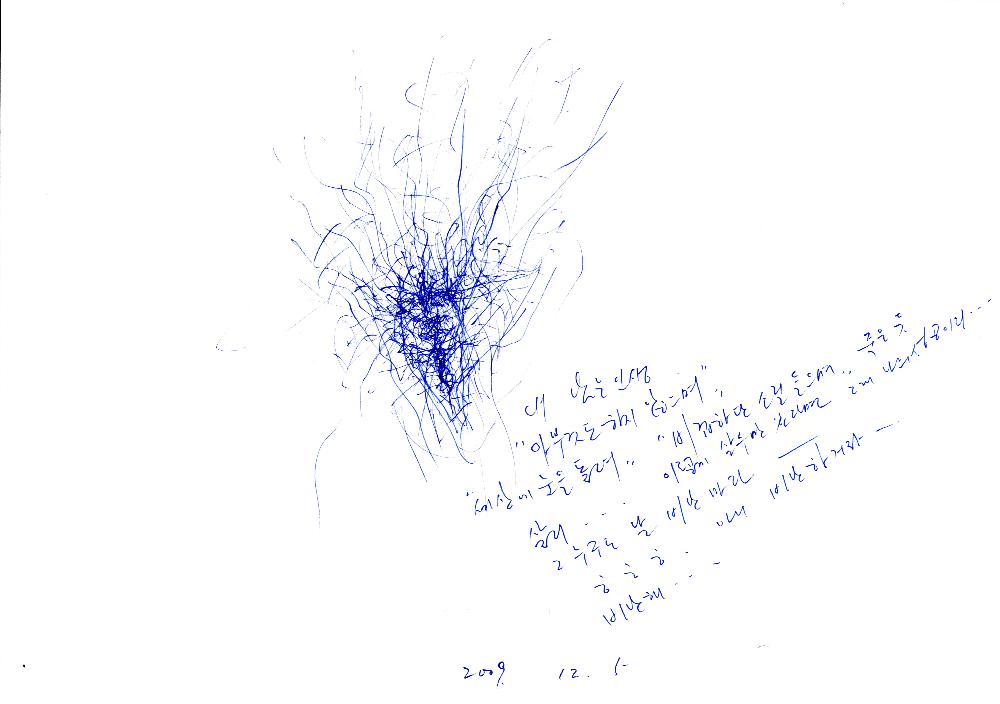 내 남은 인생
"아무것도 하지 않으며",
"세상에 눈을 돌려" "비겁하단 소릴 들으며" 죽은 듯
살리 . . . 이렇게 살수만 있다면 그게 나의 성공이리 - - -
그 누구도 날 비난 마라
흥 흥 흥 . "내 비난하거라 —
비난해 - - - -
2009 12. 5